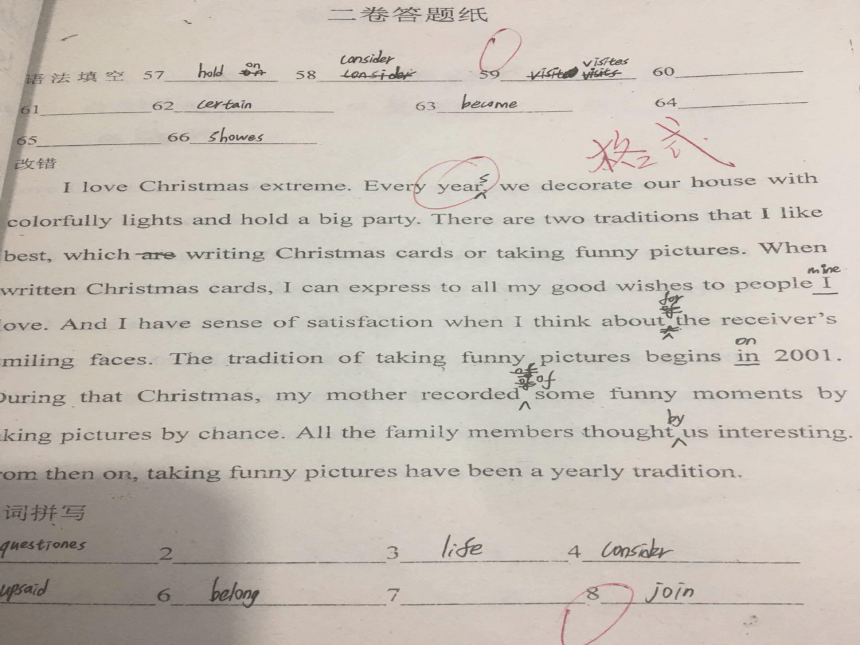 二卷答题纸
语法填空 57 hold on 58 consider 59 visites 60
61 62 certain 63 become 64
65 66 showes
格式
改错
I love Christmas extreme. Every years, we decorate our house with
colorfully lights and hold a big party. There are two traditions that I like
best, which are writing Christmas cards or taking funny pictures. When
mine
written Christmas cards, I can express to all my good wishes to people I
for
love. And I have sense of satisfaction when I think about the receiver's
on
miling faces. The tradition of taking funny pictures begins in 2001.
of
During that Christmas, my mother recorded some funny moments by
by
king pictures by chance. All the family members thought us interesting.
rom then on, taking funny pictures have been a yearly tradition.
词拼写
questiones 2 3 life 4 consider
upsaid 6 belong 7 8 join